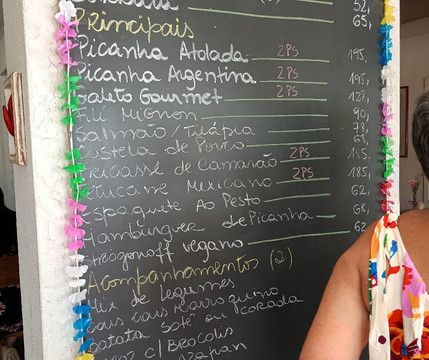 52,
65,
Principais
Picanha Atolada 2PS 195,
Picanha Argentina 2PS 195,
Galeto Gourmet 2PS 122,
Filé Mignon 90,
Salmão/Tilápia 78,
Costela de Porco 63,
Fricassê de Camarão 2PS
Mexicano 2PS 185,
Espaguete Ao Pesto 62,
Hambúrguer de Picanha 68,
Strogonoff vegano 62
Acompanhamentos (2)
Mix de legumes
Cous cous Marroquino
Batata sotê ou corada
Arroz c/ Brócolis